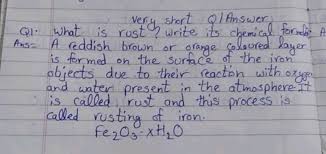 Very short Q/Answer
Q1. What is rust? Write its chemical formula. A
Ans- A reddish brown or orange coloured layer
is formed on the surface of the iron
objects due to their reaction with oxygen
and water present in the atmosphere. It
is called rust and this process is
called rusting of iron.
Fe2O3·xH2O